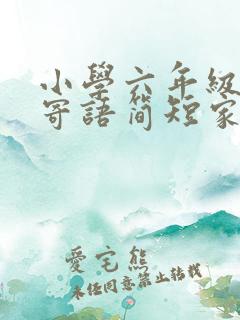 小學六年級
寄語簡短家
愛宅熊
未经同意禁止转载